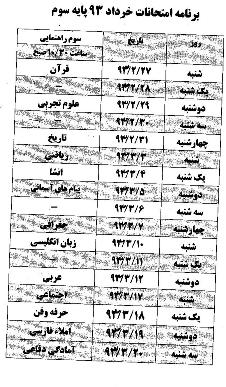 برنامه امتحانات خرداد ۹۳ پایه سوم
روز تاریخ سوم راهنمایی
ساعت ۱۰/۳۰ صبح
شنبه ۹۳/۲/۲۷ قرآن
یک شنبه ۹۳/۲/۲۸ –
دوشنبه ۹۳/۲/۲۹ علوم تجربی
سه شنبه ۹۳/۲/۳۰ –
چهارشنبه ۹۳/۲/۳۱ تاریخ
شنبه ۹۳/۳/۳ ریاضی
یک شنبه ۹۳/۳/۴ انشا
دوشنبه ۹۳/۳/۵ پیام‌های آسمانی
سه شنبه ۹۳/۳/۶ –
چهارشنبه ۹۳/۳/۷ جغرافی
شنبه ۹۳/۳/۱۰ زبان انگلیسی
یک شنبه ۹۳/۳/۱۱
دوشنبه ۹۳/۳/۱۲ عربی
شنبه ۹۳/۳/۱۷ اجتماعی
یک شنبه ۹۳/۳/۱۸ حرفه وفن
دوشنبه ۹۳/۳/۱۹ املاء فارسی
سه شنبه ۹۳/۳/۲۰ آمادگی دفاعی